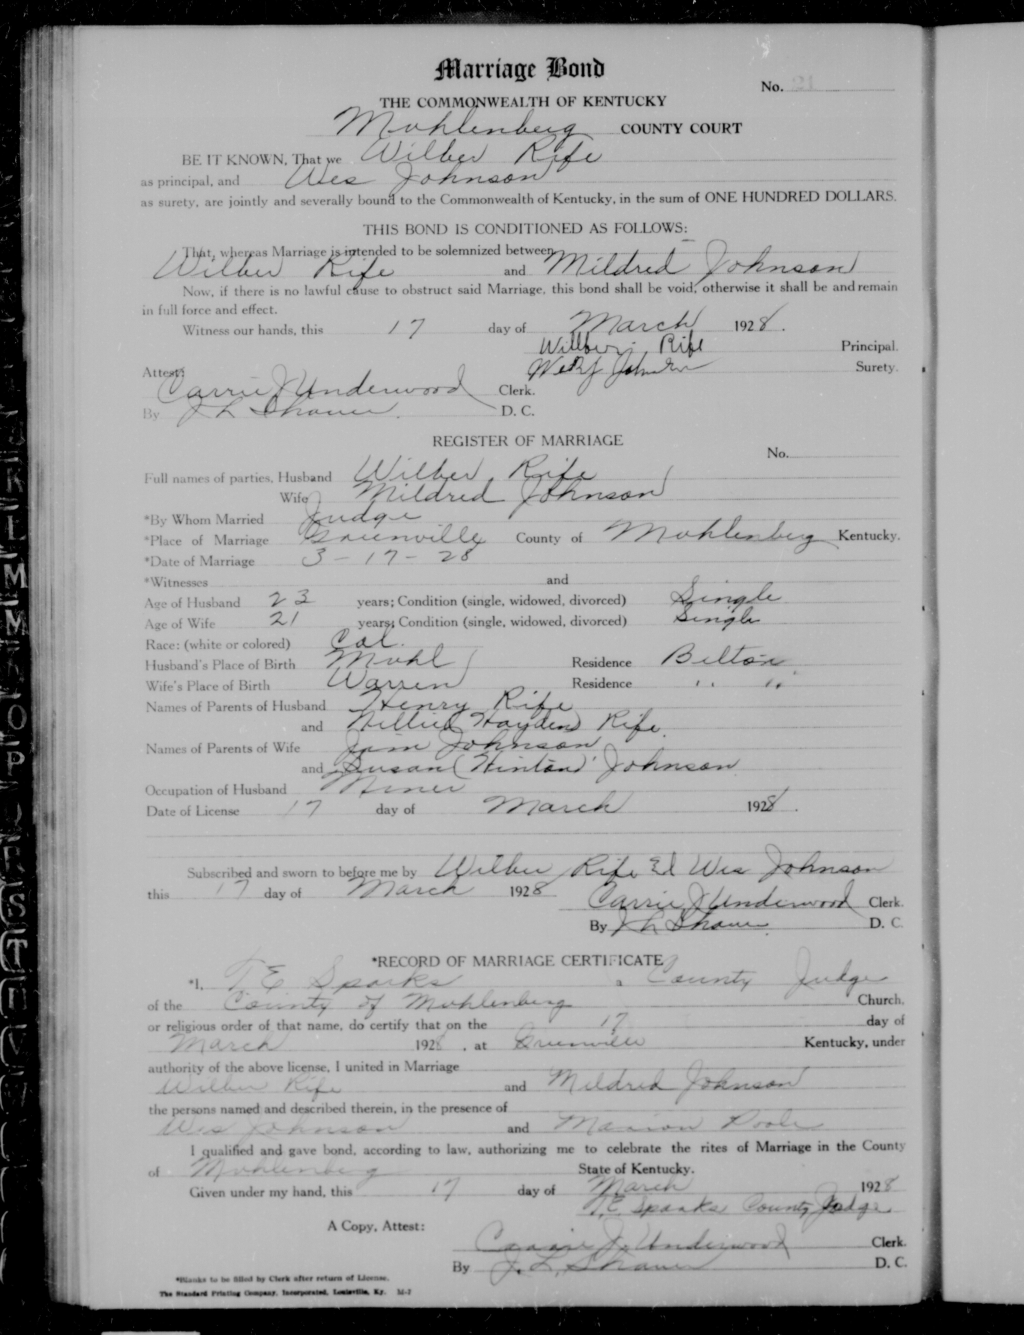 Marriage Bond
No. 21
THE COMMONWEALTH OF KENTUCKY
Muhlenberg COUNTY COURT
BE IT KNOWN, That we Wilber Rife
as principal, and Wes Johnson
as surety, are jointly and severally bound to the Commonwealth of Kentucky, in the sum of ONE HUNDRED DOLLARS.
THIS BOND IS CONDITIONED AS FOLLOWS:
That, whereas Marriage is intended to be solemnized between
Wilber Rife and Mildred Johnson
Now, if there is no lawful cause to obstruct said Marriage, this bond shall be void, otherwise it shall be and remain
in full force and effect.
Witness our hands, this 17 day of March 1928.
Wilber Rife Principal.
Johnson Surety.
Attest:
Carrie J Underwood Clerk.
By J L Shaver. D. C.
REGISTER OF MARRIAGE
No.
Full names of parties, Husband Wilber Rife
Wife Mildred Johnson
*By Whom Married Judge
*Place of Marriage Greenville County of Muhlenberg Kentucky.
*Date of Marriage 3-17-28
*Witnesses and
Age of Husband 23 years; Condition (single, widowed, divorced) Single
Age of Wife 21 years; Condition (single, widowed, divorced) Single
Race: (white or colored) Col.
Husband's Place of Birth Muhl Residence Belton
Wife's Place of Birth Warren Residence " "
Names of Parents of Husband Henry Rife
and (Hayden) Rife.
Names of Parents of Wife Jim Johnson
and Susan (Hinton) Johnson
Occupation of Husband Miner
Date of License 17 day of March 1928.
Subscribed and sworn to before me by Wilber Rife & Wes Johnson
this 17 day of March 1928
Carrie J Underwood Clerk.
By J L Shaver. D. C.
*RECORD OF MARRIAGE CERTIFICATE
*I, T E Sparks a County Judge
of the County of Muhlenberg Church.
or religious order of that name, do certify that on the 17 day of
March 1928, at Greenville Kentucky, under
authority of the above license, I united in Marriage
Wilber Rife and Mildred Johnson
the persons named and described therein, in the presence of
Wes Johnson and Marion Poole
I qualified and gave bond, according to law, authorizing me to celebrate the rites of Marriage in the County
of Muhlenberg State of Kentucky.
Given under my hand, this 17 day of March 1928
T. E. Sparks County Judge
A Copy, Attest:
Carrie J. Underwood Clerk.
By J. L. Shaver D. C.
*Blanks to be filled by Clerk after return of License.
The Standard Printing Company, Incorporated, Louisville, Ky. M-2